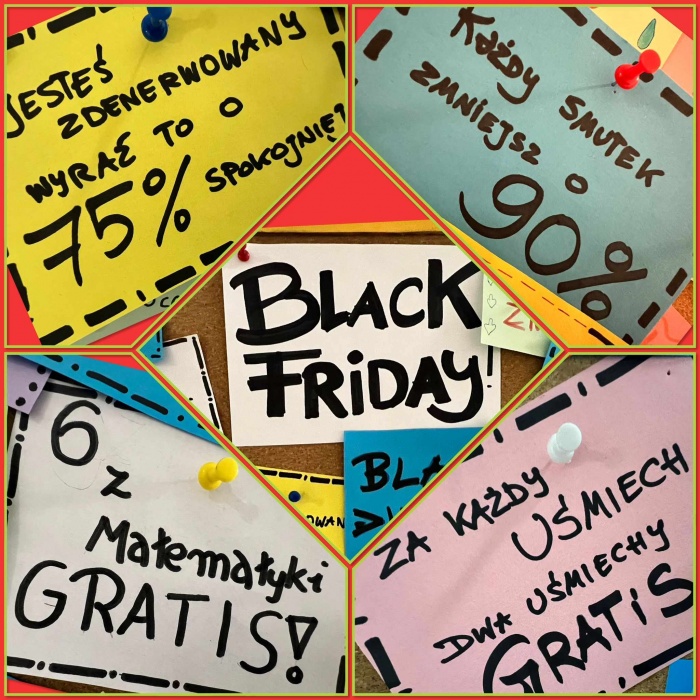 JESTEŚ
ZDENERWOWANY
WYRAŹ TO O
75% SPOKOJNIEJ
Każdy SMUTEK
ZMNIEJSZ O
90%
BLACK
FRiDAY!
BLA
OWAN
6 z
Matematyki
GRATIS!
ZA KAŻDY
UŚMIECH
DWA UŚMIECHY
GRATiS